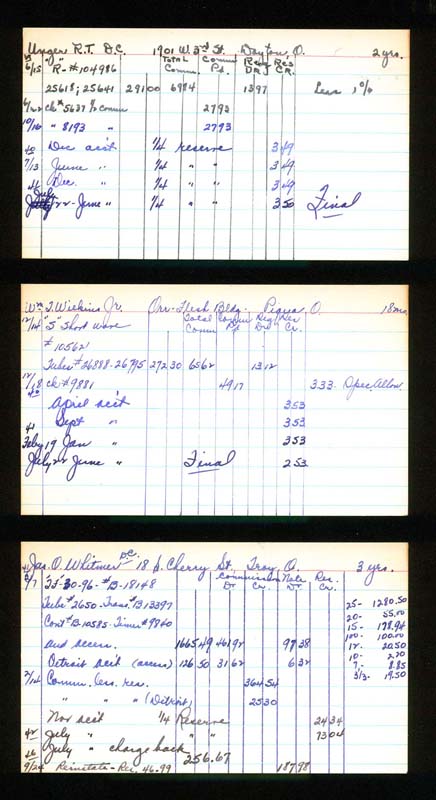 Unger R.T. D.C. 1901 W 3rd St. Dayton, O. 2 yrs.
Total Comm Res Res
Comm. Pd. DR CR.
6/15 R-#104986
25618; 25641 291 00 69 84 13 97 Less 1%
ck# 5637 1/2 comm 27 93
10/16 " 8193 " 27 93
40 Dec acct 1/4 reserve 3 49
7/13 June " 1/4 " " 3 49
41 Dec. " 1/4 " " 3 49
July 22 - June " 1/4 " " 3 50 Final
Wm T. Wilkins Jr. Orr-Flesh Bldg. Piqua, O. 18 mo.
Total Comm Res Res
Comm Pd Dr Cr.
12/14 "S" Short wave
# 10562
Tubes #26888-26795 272 30 65 62 13 12
12/18 ck #9881 49 17 3.33 Spec Allow
40 April acct 3 53
Sept " 3 53
41 Feby 19 Jan " 3 53
July 22 June " Final 2 53
Jas. O. Whitmer D.C. 18 S. Cherry St., Troy, O. 3 yrs.
Commission Note Res.
Dr Cr. Dr Cr.
3/7 "FF"-30-96-#B-18148
Tube #2650-Trans.#B13397 25- 1280.50
Cont #B-10585-Timer #9840 20- 55.00
15- 178.94
100- 100.00
and access. 1665 49 461 92 97 38 12- 20.50
10- 2.20
Detroit acct (access) 126 50 31 62 6 32 7- 8.85
2/14 Comm. less res. 364 54 3 1/3- 19.50
" " " (Detroit) 25 30
Nov acct 1/4 Reserve 24 34
42 July " " " 73 04
July " charge back 256.67
9/24 Reinstate-Res. 46.99 187 98